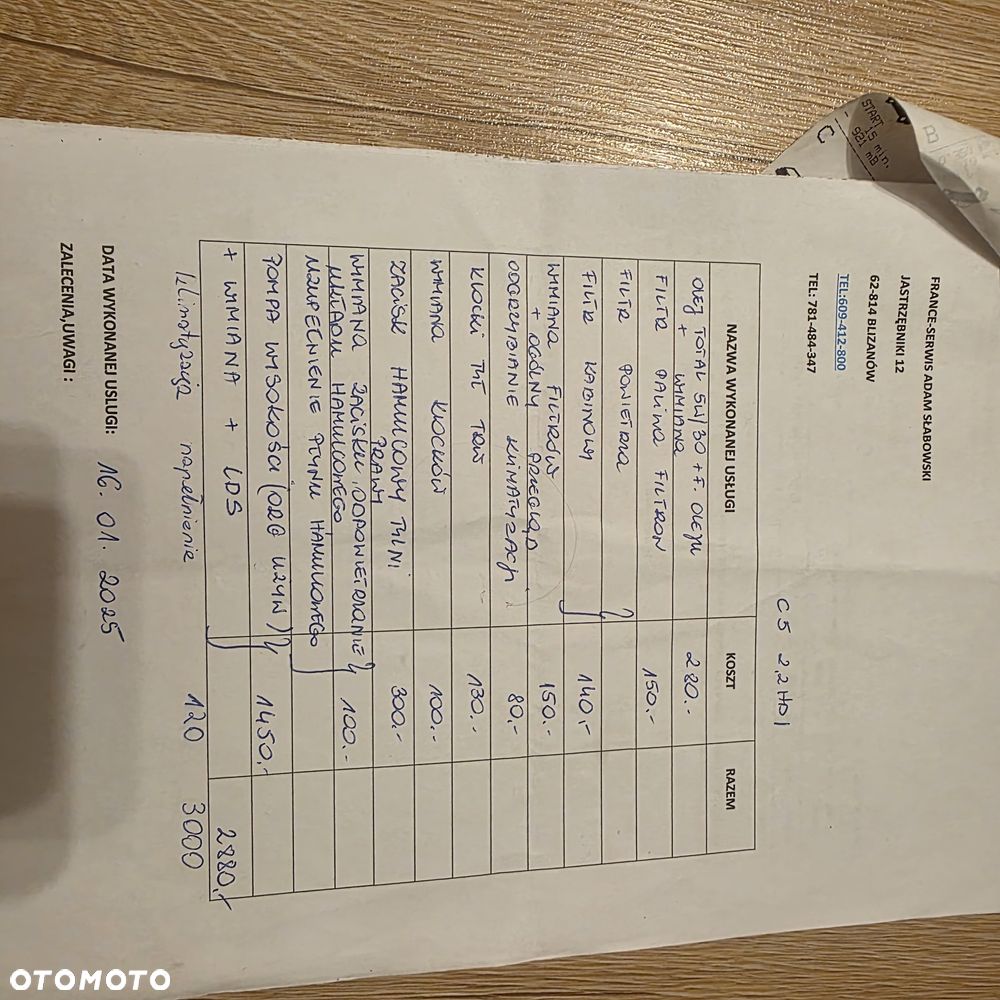 FRANCE-SERWIS ADAM SŁABOWSKI
JASTRZĘBNIKI 12
62-814 BLIZANÓW
TEL:609-412-800
TEL: 781-484-347
C5 2,2 HDI
NAZWA WYKONANEJ USŁUGI KOSZT RAZEM
OLEJ TOTAL 5W/30 + F. OLEJU
+ WYMIANA 280.-
FILTR PALIWA FILTRON 150.-
FILTR POWIETRZA
FILTR KABINOWY 140,-
WYMIANA FILTRÓW
+ OGÓLNY PRZEGLĄD 150.-
ODGRZYBIANIE KLIMATYZACJI 80,-
KLOCKI TYŁ TRW 130.-
WYMIANA KLOCKÓW 100.-
ZACISK HAMULCOWY TYLNI
PRAWY 300.-
WYMIANA ZACISKU, ODPOWIETRZANIE
UKŁADU HAMULCOWEGO 100.-
UZUPEŁNIENIE PŁYNU HAMULCOWEGO
POMPA WYSOKOŚCI (ORG UŻYW) 1450,-
+ WYMIANA + LDS 2880,-
klimatyzacja napełnienie 120 3000
DATA WYKONANEJ USŁUGI: 16. 01. 2025
ZALECENIA,UWAGI :
START
15 min.
921 mB
C
B
OTOMOTO